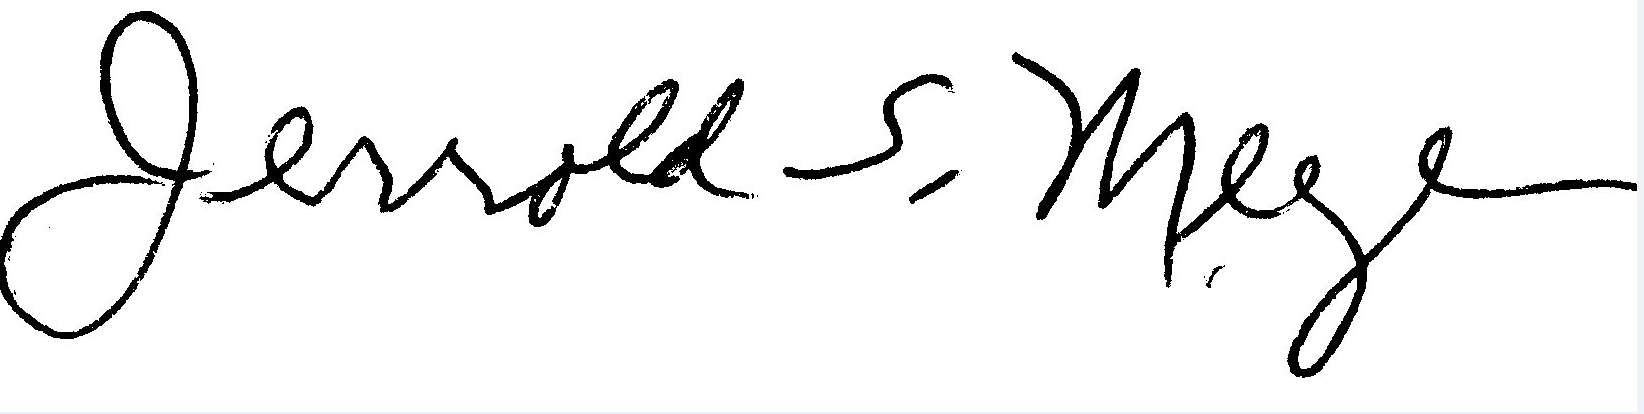 Jerrold S. Meyer